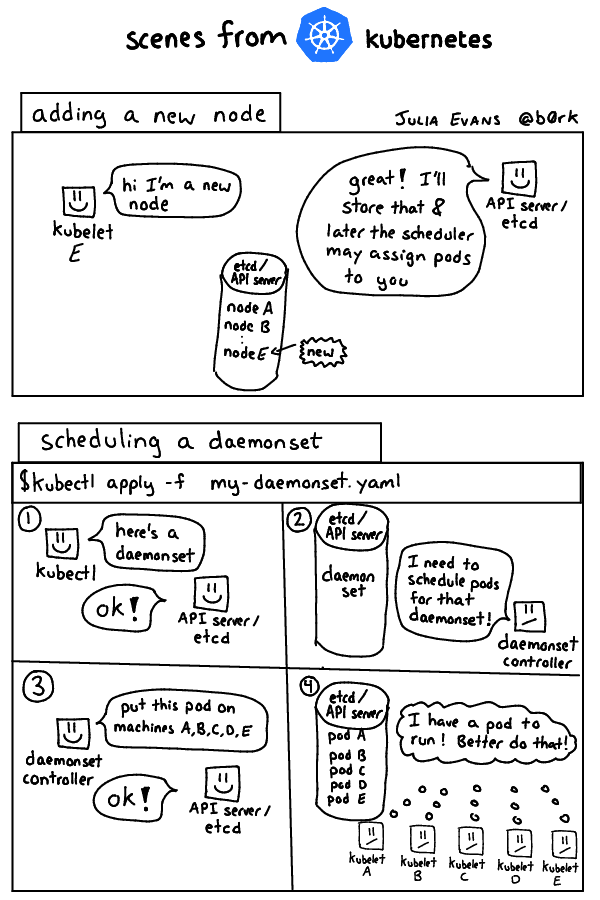 scenes from kubernetes
adding a new node
JULIA EVANS @b0rk
hi I'm a new
node
kubelet
E
great! I'll
store that &
later the scheduler
may assign pods
to you
API server/
etcd
etcd/
API server
node A
node B
:
node E
new
scheduling a daemonset
$kubectl apply -f my-daemonset.yaml
1
here's a
daemonset
kubectl
ok!
API server/
etcd
2
etcd/
API server
daemon
set
I need to
schedule pods
for that
daemonset!
daemonset
controller
3
put this pod on
machines A,B,C,D,E
daemonset
controller
ok!
API server/
etcd
4
etcd/
API server
pod A
pod B
pod C
pod D
pod E
I have a pod to
run! Better do that!
kubelet
A
kubelet
B
kubelet
C
kubelet
D
kubelet
E